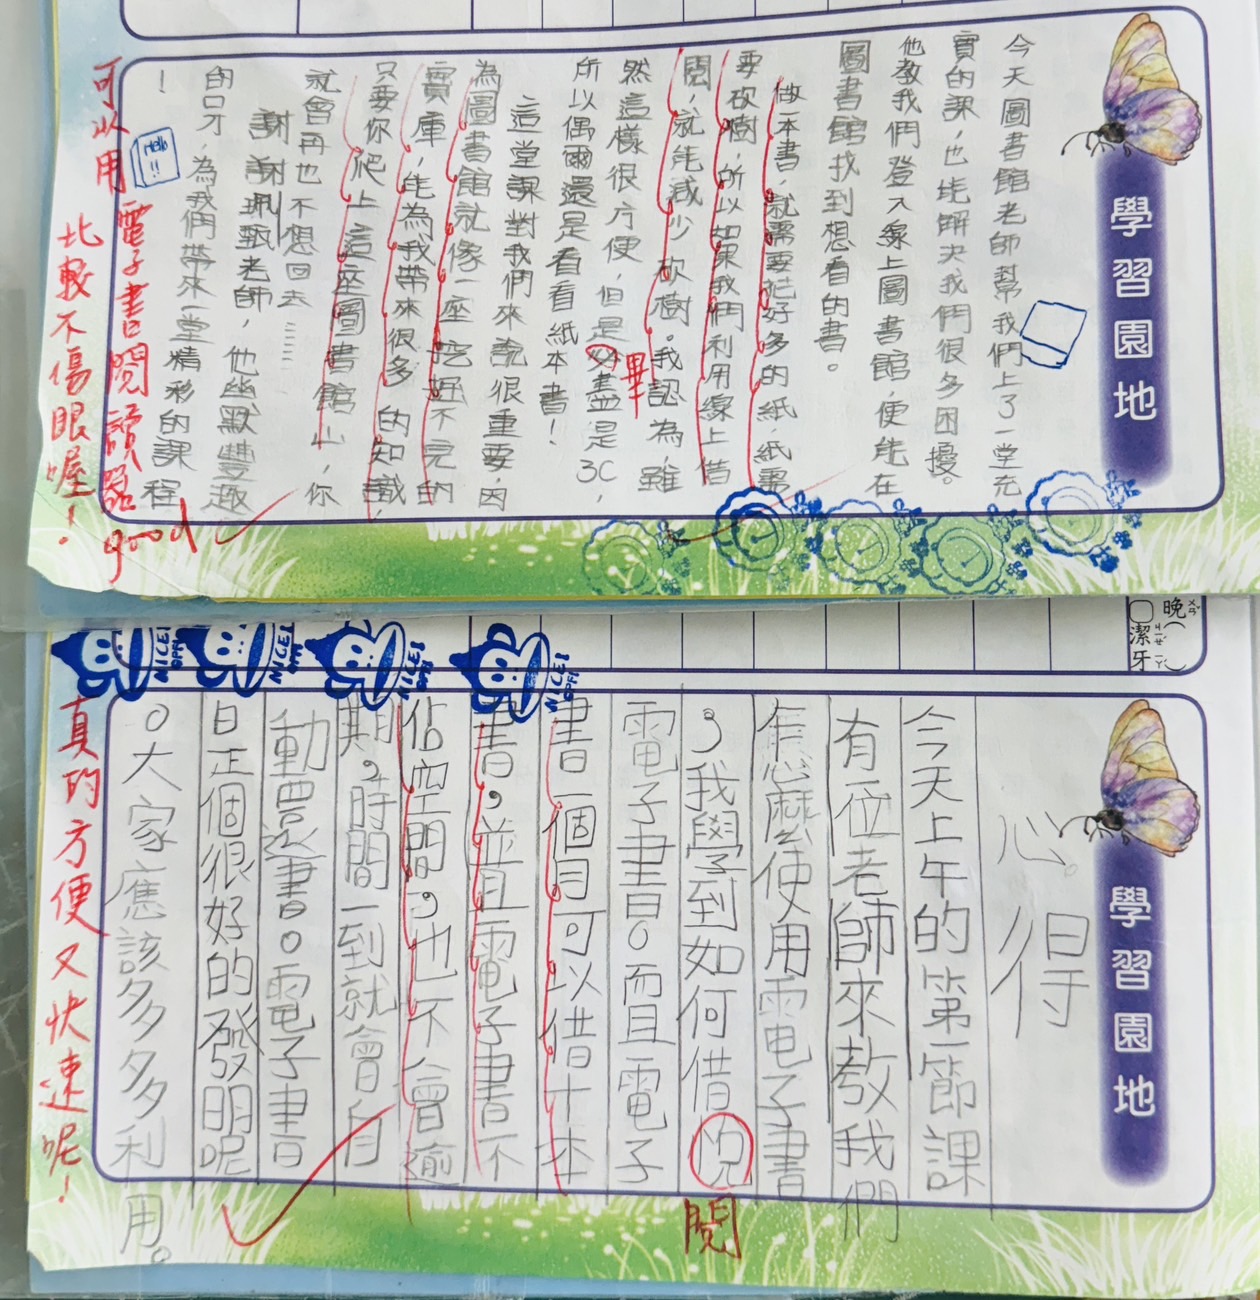 學習園地
今天圖書館老師幫我們上了一堂充
實的課，也能解決我們很多困擾。
他教我們登入線上圖書館，便能在
圖書館找到想看的書。
做一本書，就需要妃好多的紙，紙需
要砍樹，所以如果我們利用線上借
閱，就能減少砍樹。我認為，雖
然這樣很方便，但是必盡是3C，
畢
所以偶爾還是看看紙本書！
這堂課對我們來說很重要，因
為圖書館就像一座挖掘不完的
寶庫，能為我帶來很多的知識，
只要你爬上這座圖書館山，你
就會再也不想回去……
謝謝珮甄老師，他幽默豐趣
的口才，為我們帶來一堂精彩的課程
！
Hello!!
可以用電子書閱讀器
比較不傷眼喔！
good
晚ㄨㄢˇ
潔ㄐㄧㄝˊ
牙ㄧㄚˊ
學習園地
心得
今天上午的第一節課
有一位老師來教我們
怎麼使用電子書
，我學到如何借悅
閱
電子書。而且電子
書一個月可以借十本
書，並且電子書不
佔空間，也不會逾
期，時間一到就會自
動還書。電子書
日正個很好的發明呢
。大家應該多多利用。
真的方便又快速呢！
NICE!
NICE!
NICE!
NICE!